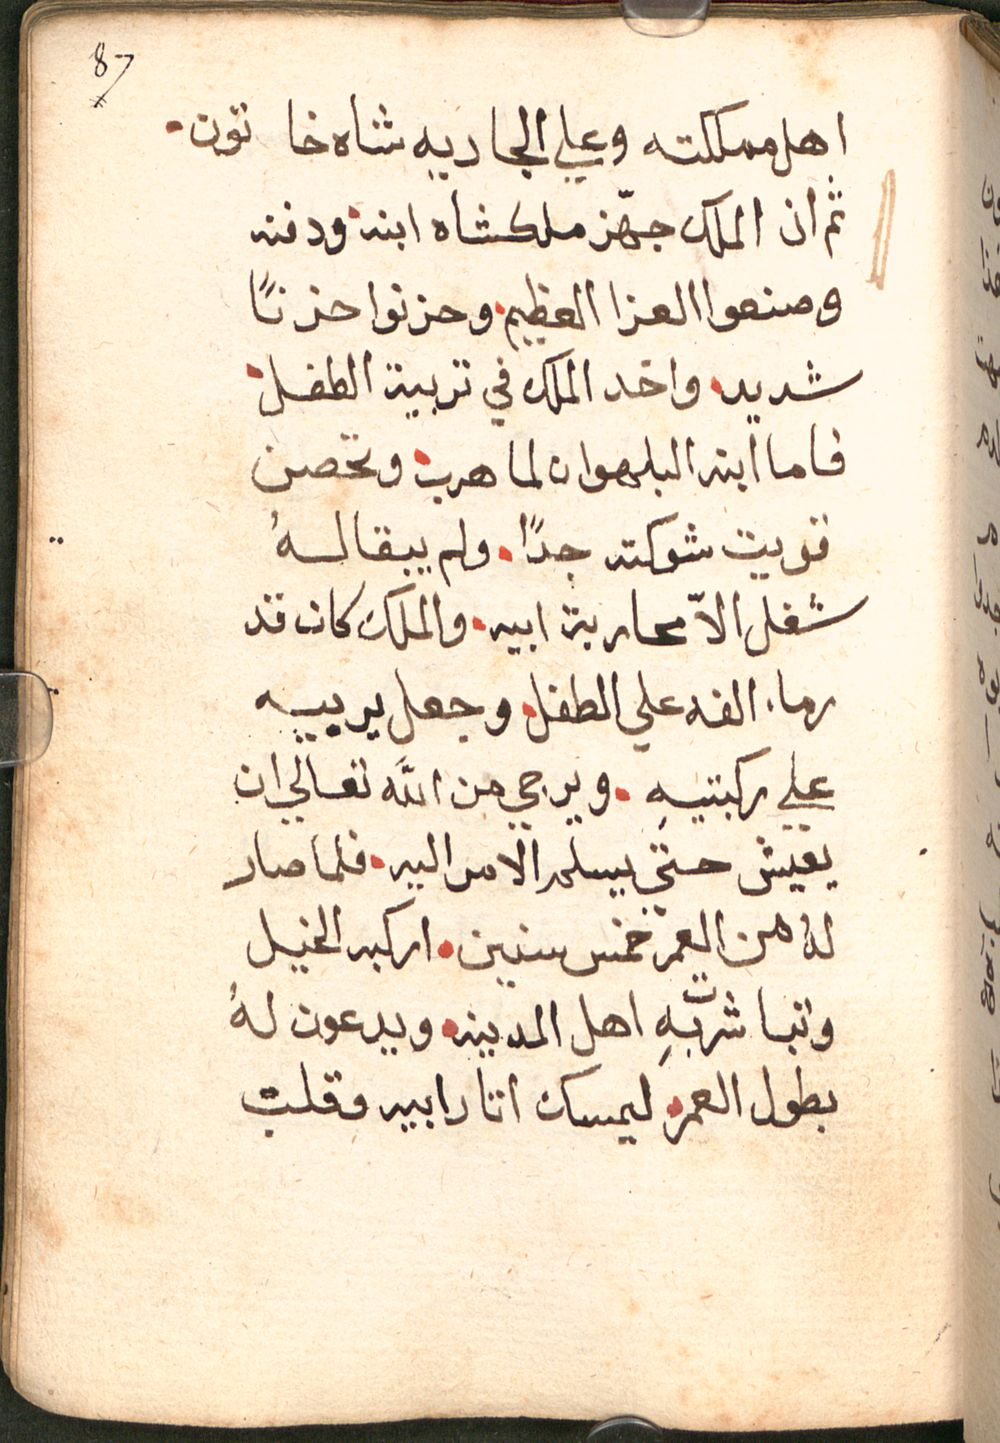 87
اهل مملكته وعلي الجاريه شاه خا تون.
ثم ان الملك جهّز ملكشاه ابنه. ودفنه
وصنعوا العزا العظيم. وحزنوا حزنًا
شديد. واخد الملك في تربية الطفل.
فاما ابنه البلهوان لما هرب. وتحصن
قويت شوكته جدًا. ولم يبقا لهُ
شغل الاّ محاربة ابيه. والملك كان قد
رماء الفه علي الطفل. وجعل يربيه
علي ركبتيهِ. ويرجي من الله تعالي ان
يعيش حتي يسلم الامر اليه. فلما صار
لهُ من العمر خمس سنين. اركبه الخيل
وتباشرت بهِ اهل المدينه. ويدعون لهُ
بطول العمر. ليمسك اثار ابيه وقلب